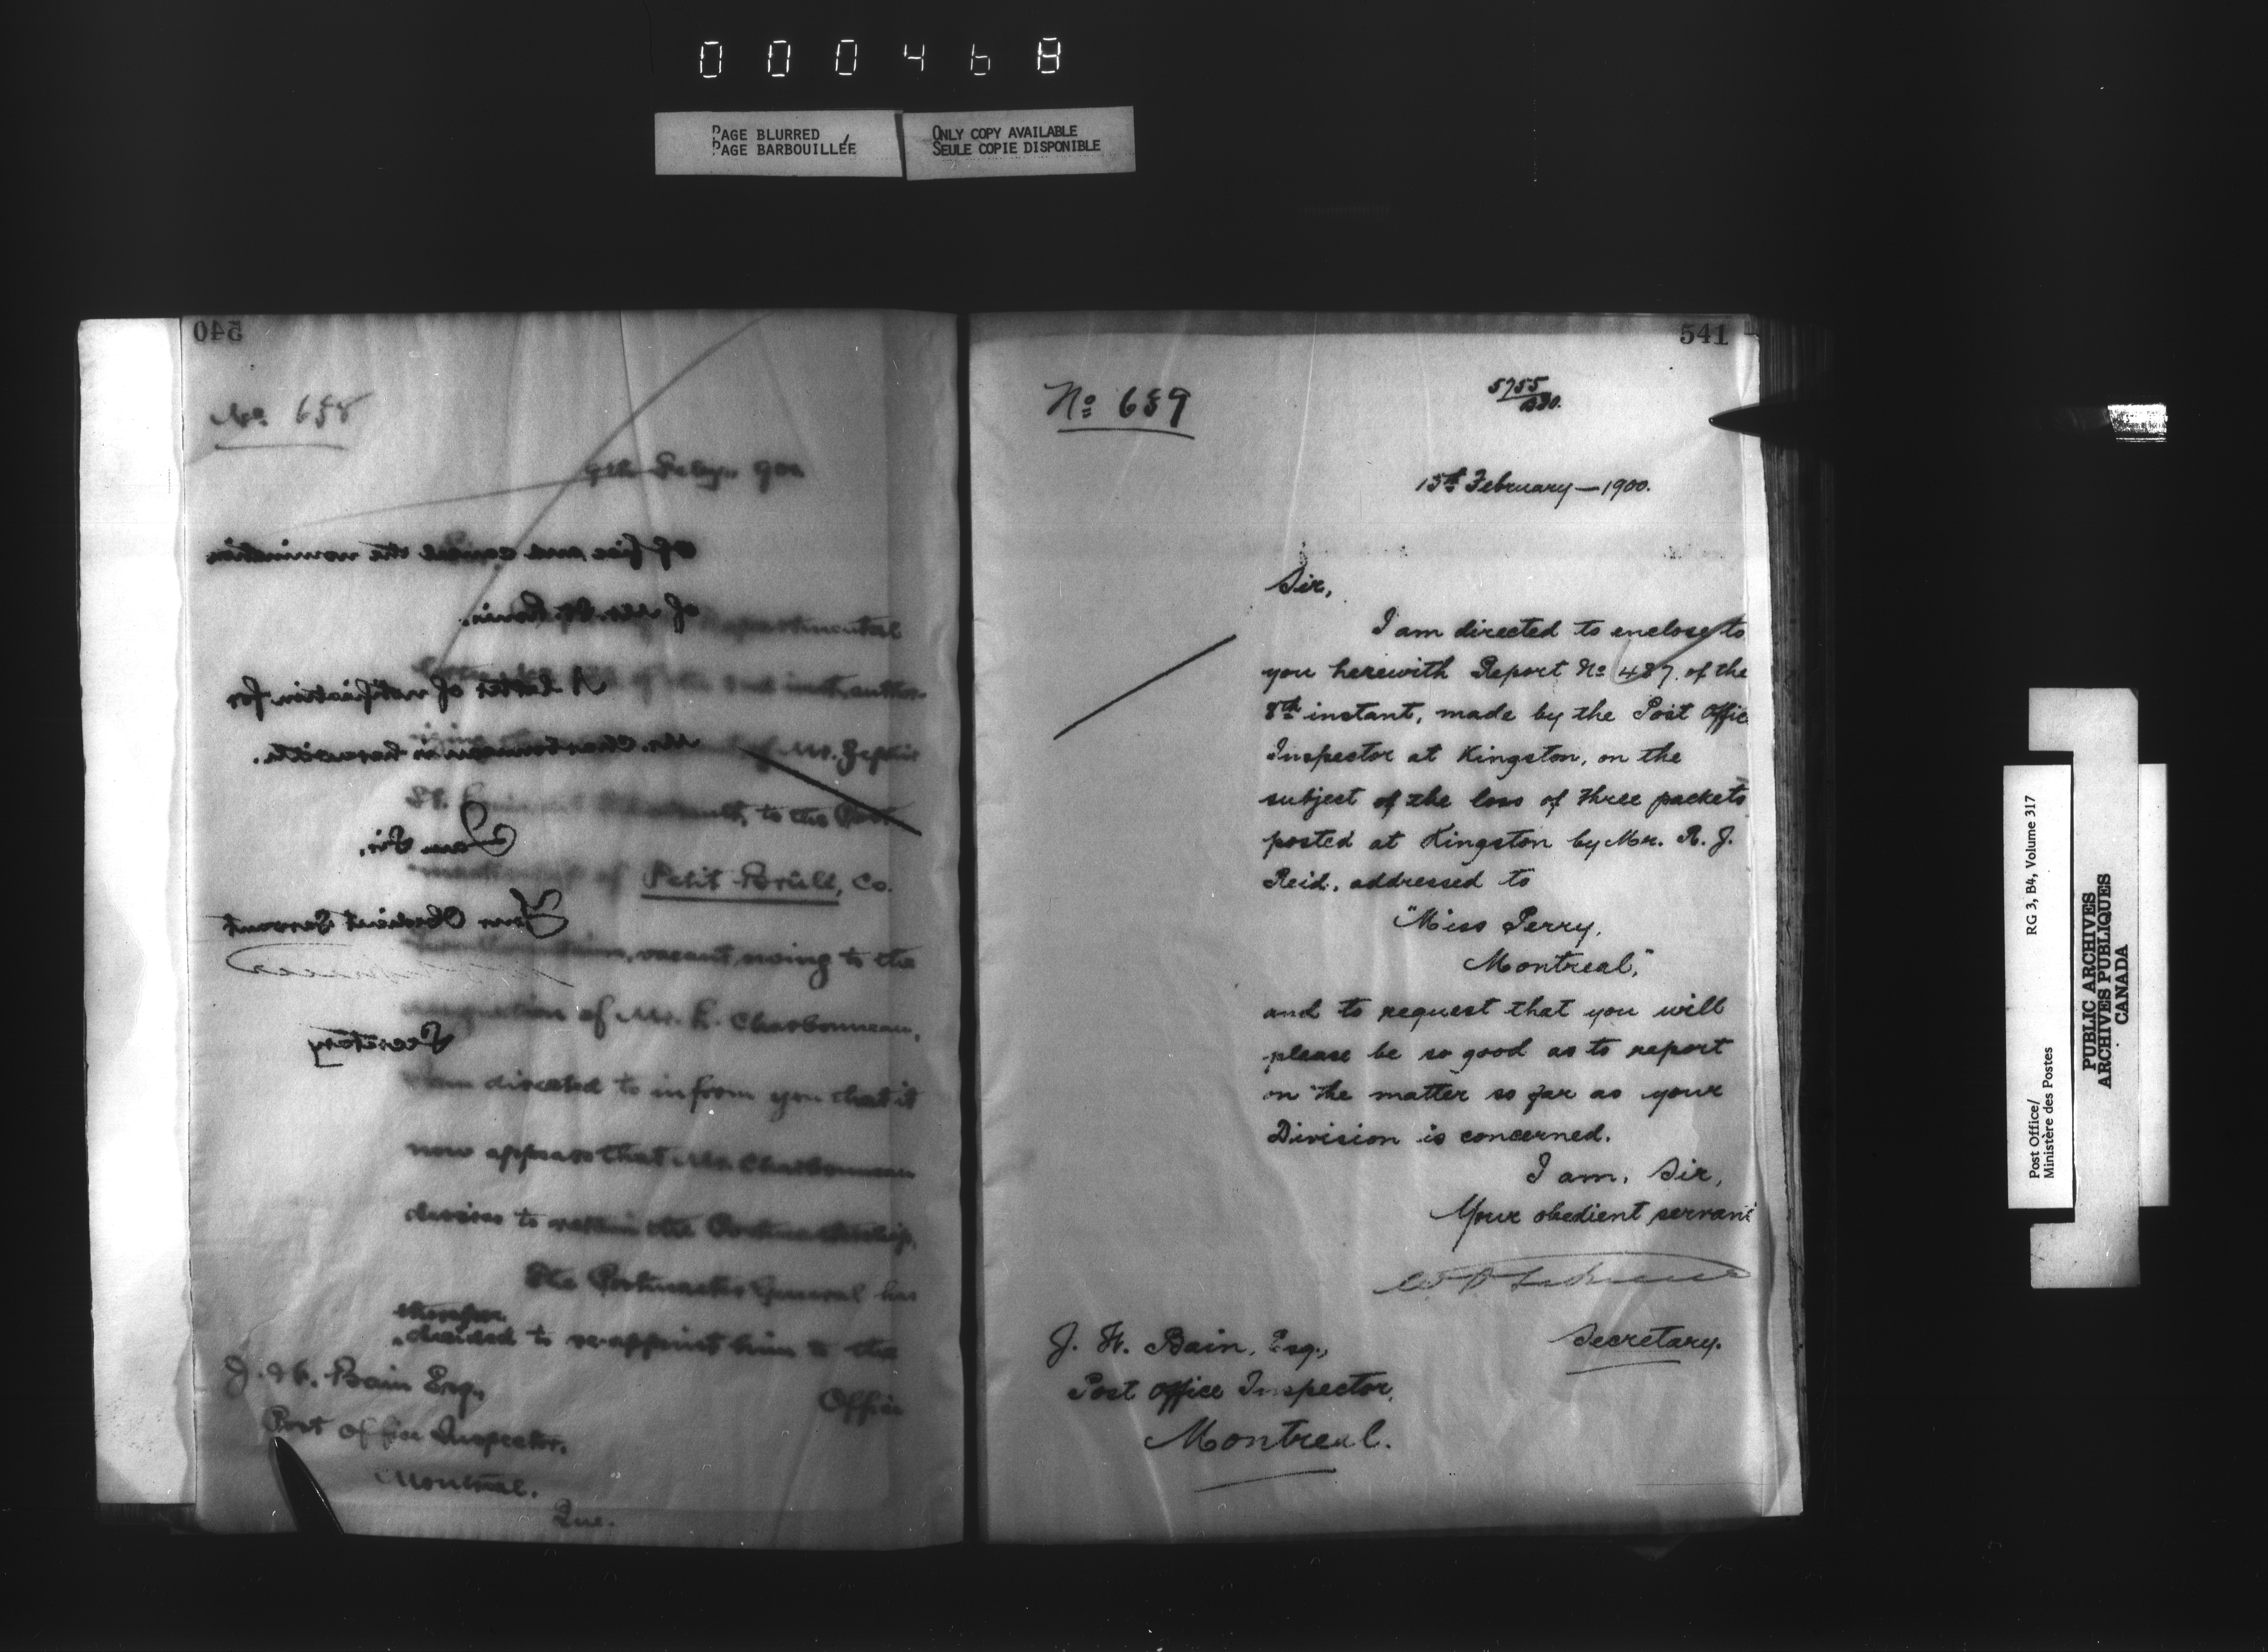 000468
PAGE BLURRED
PAGE BARBOUILLÉE
ONLY COPY AVAILABLE
SEULE COPIE DISPONIBLE
540
No. 658
9th Feby. 900
Departmental
of the 2nd inst, author-
of Mr. Zephir
to the Post
of Petit Brulé, Co.
vacant owing to the
resignation of Mr. L. Charbonneau,
I am directed to inform you that it
now appears that Mr. Charbonneau
desires to retain the Postmastership.
The Postmaster General has
therefore
decided to re-appoint him to the
Office
J. H. Bain Esq.,
Post Office Inspector,
Montreal.
Que.
Office and cancel the nomination
of Mr. St. Louis.
A letter of notification for
Mr. Charbonneau herewith.
I am Sir,
Your Obedient Servant
Secretary
541
No 659
5755
1513th February — 1900.
Sir,
I am directed to enclose to
you herewith Report No 487 of the
8th instant, made by the Post Office
Inspector at Kingston, on the
subject of the loss of three packets
posted at Kingston by Mr. R. J.
Reid, addressed to
"Miss Perry,
Montreal,"
and to request that you will
please be so good as to report
on the matter so far as your
Division is concerned.
I am, Sir,
Your obedient servant
Secretary.
J. H. Bain, Esq.,
Post Office Inspector,
Montreal.
Post Office/
Ministère des Postes
RG 3, B4, Volume 317
PUBLIC ARCHIVES
ARCHIVES PUBLIQUES
CANADA